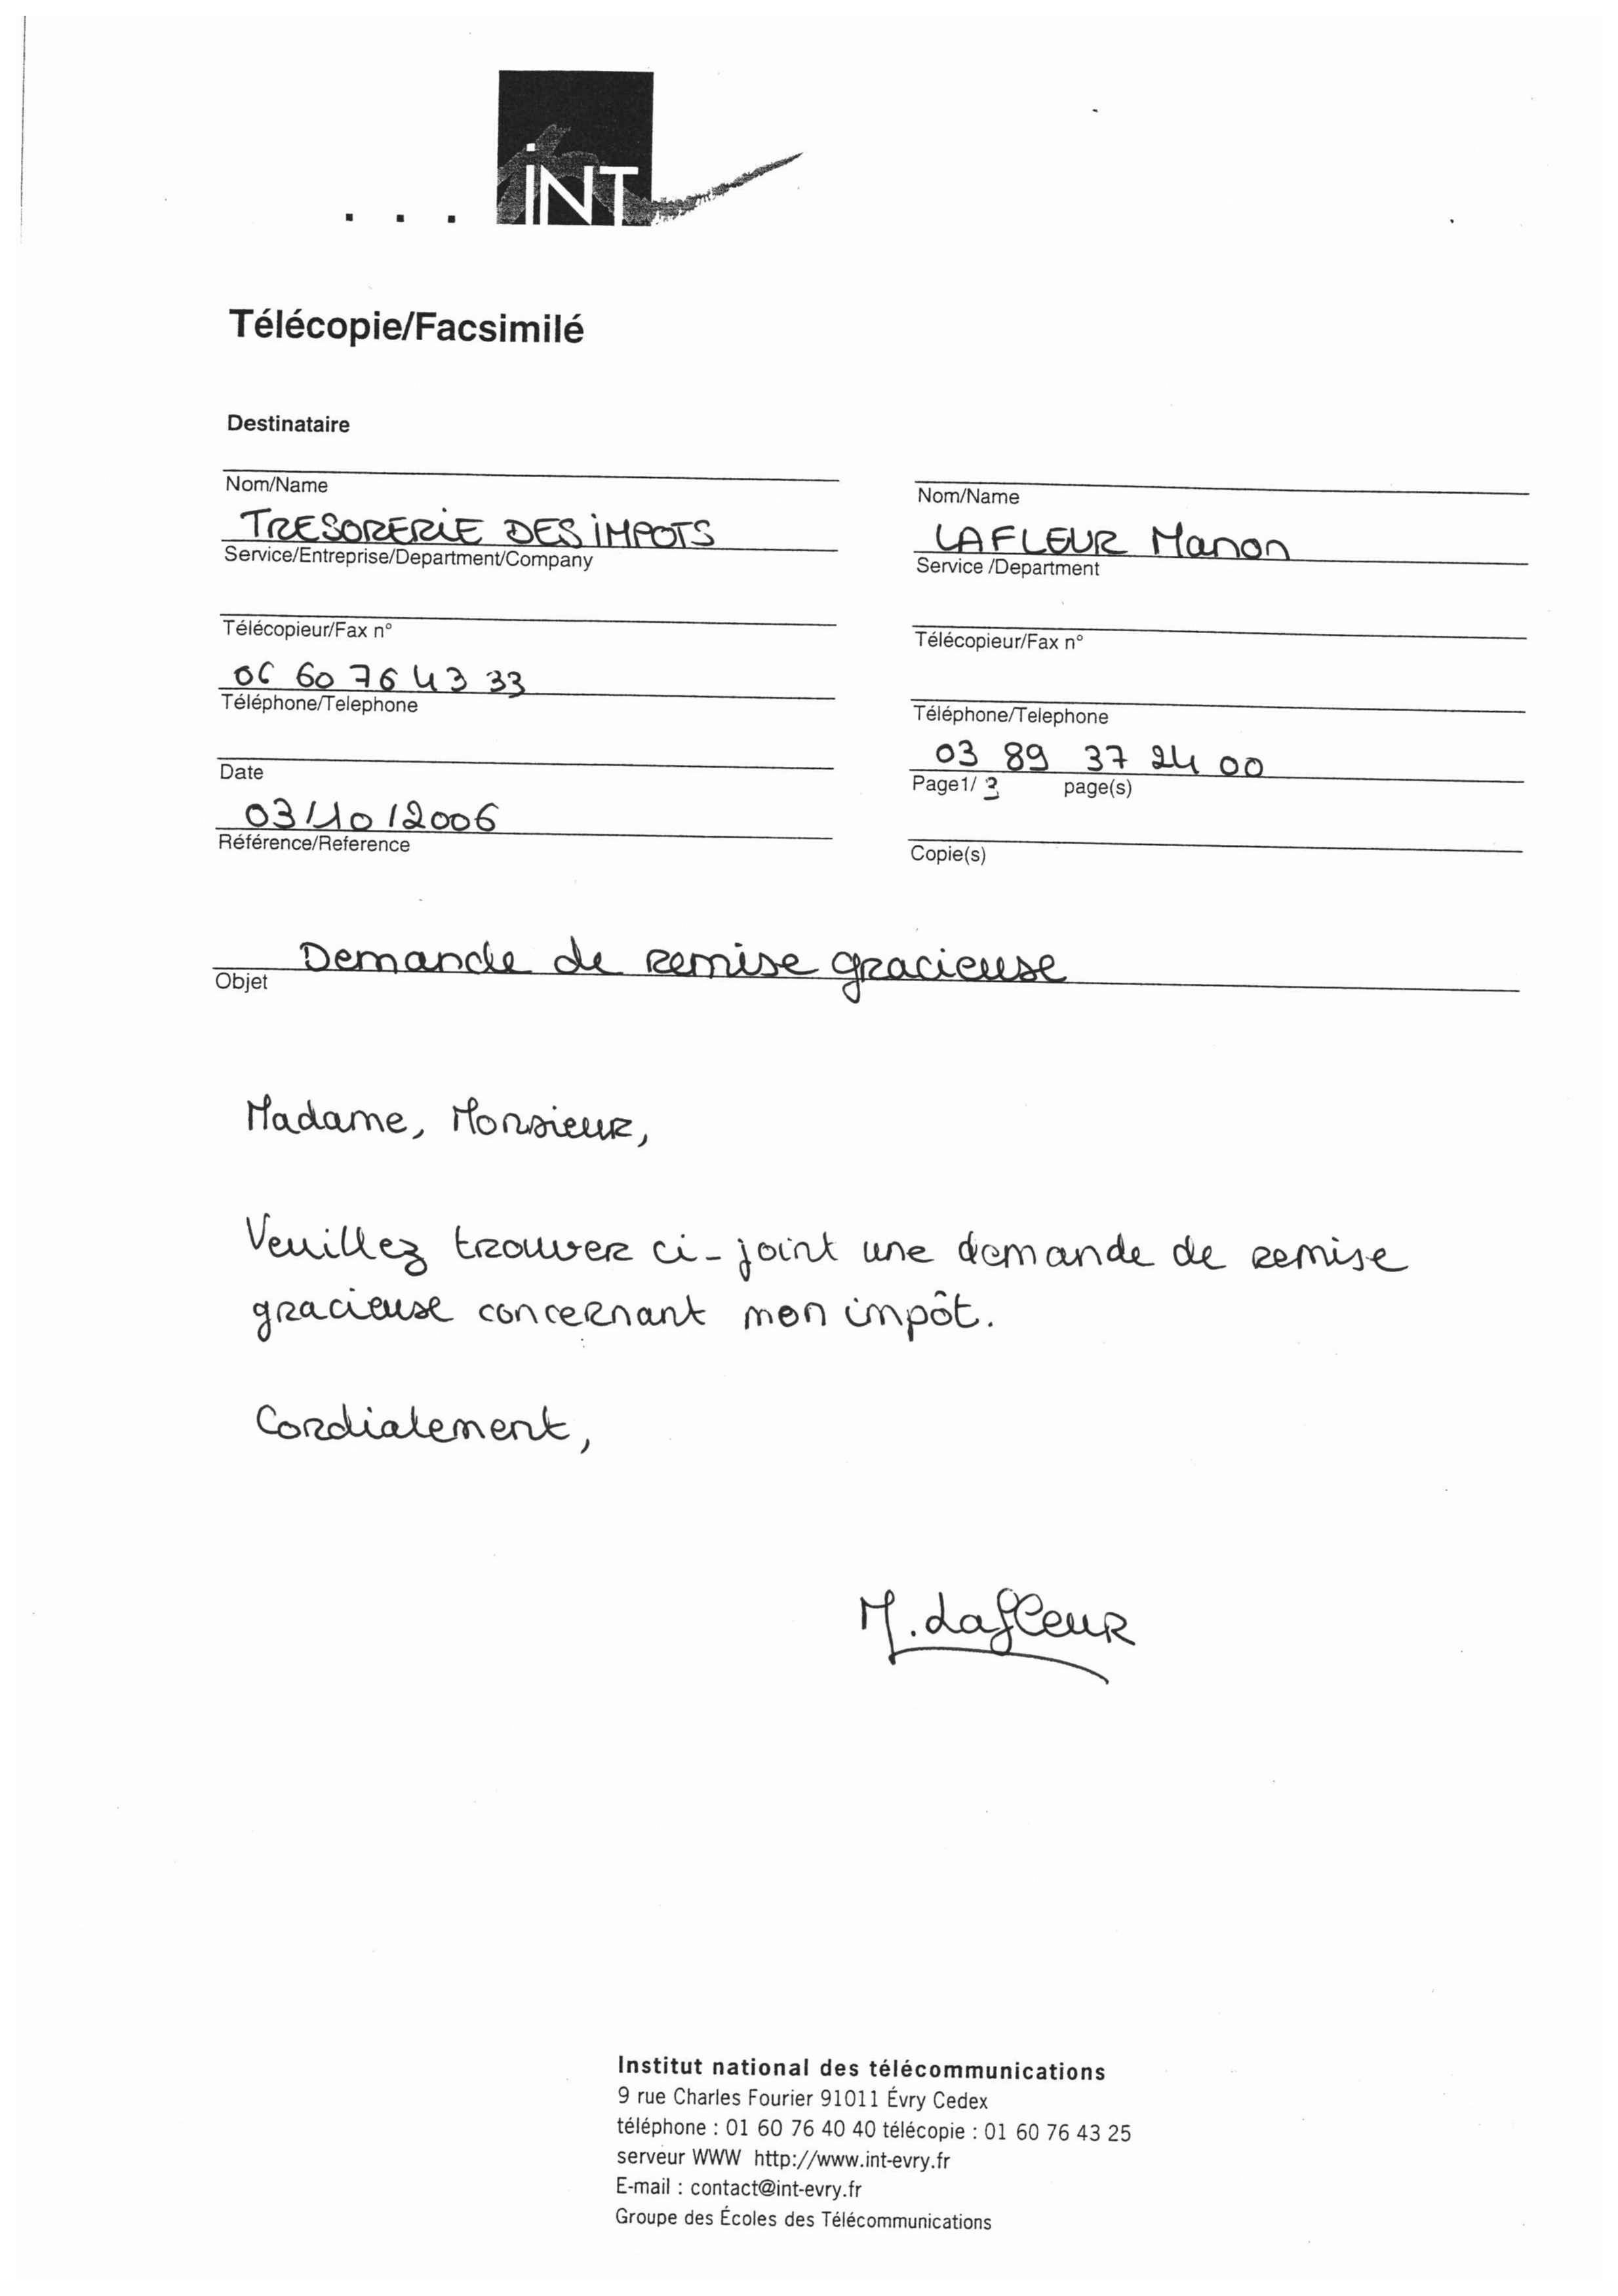 INT
Télécopie/Facsimilé
Destinataire
Nom/Name
TRESORERIE DES IMPOTS
Service/Entreprise/Department/Company
Télécopieur/Fax n°
06 60 76 43 33
Téléphone/Telephone
Date
03/10/2006
Référence/Reference
Nom/Name
LAFLEUR Manon
Service /Department
Télécopieur/Fax n°
Téléphone/Telephone
03 89 37 24 00
Page1/ 3 page(s)
Copie(s)
Demande de remise gracieuse
Objet
Madame, Monsieur,
Veuillez trouver ci-joint une demande de remise
gracieuse concernant mon impôt.
Cordialement,
M. Lafleur
Institut national des télécommunications
9 rue Charles Fourier 91011 Évry Cedex
téléphone : 01 60 76 40 40 télécopie : 01 60 76 43 25
serveur WWW http://www.int-evry.fr
E-mail : contact@int-evry.fr
Groupe des Écoles des Télécommunications